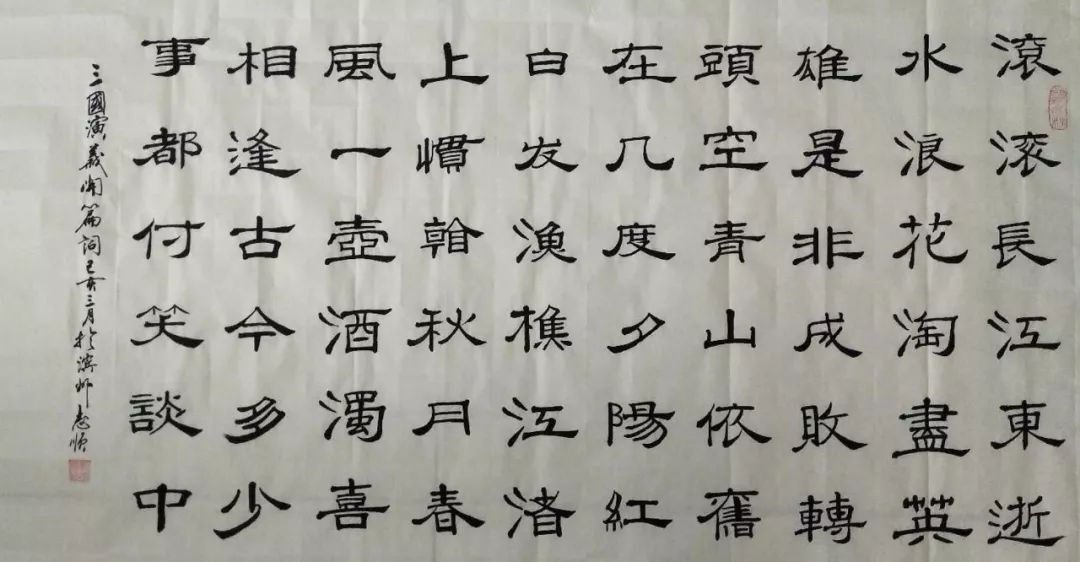 滾滚長江東逝
水浪花淘盡英
雄是非成敗轉
頭空青山依舊
在几度夕陽紅
白发漁樵江渚
上慣看秋月春
風一壺酒濁喜
相逢古今多少
事都付笑談中
三國演義開篇詞己亥三月於濱州順